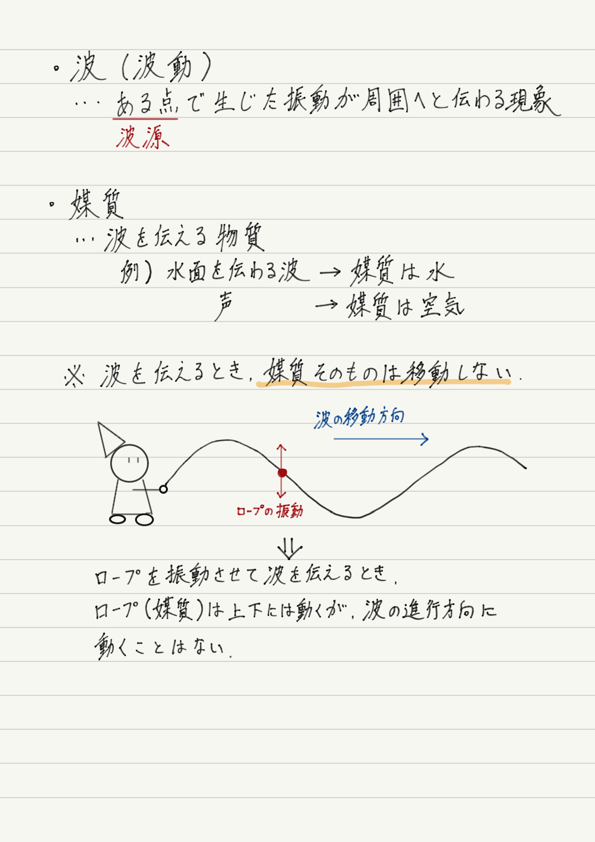 ・波（波動）
… ある点で生じた振動が周囲へと伝わる現象
波源
・媒質
… 波を伝える物質
例）水面を伝わる波 → 媒質は水
声 → 媒質は空気
※ 波を伝えるとき，媒質そのものは移動しない．
波の移動方向
ロープの振動
⇓
ロープを振動させて波を伝えるとき，
ロープ（媒質）は上下には動くが，波の進行方向に
動くことはない．